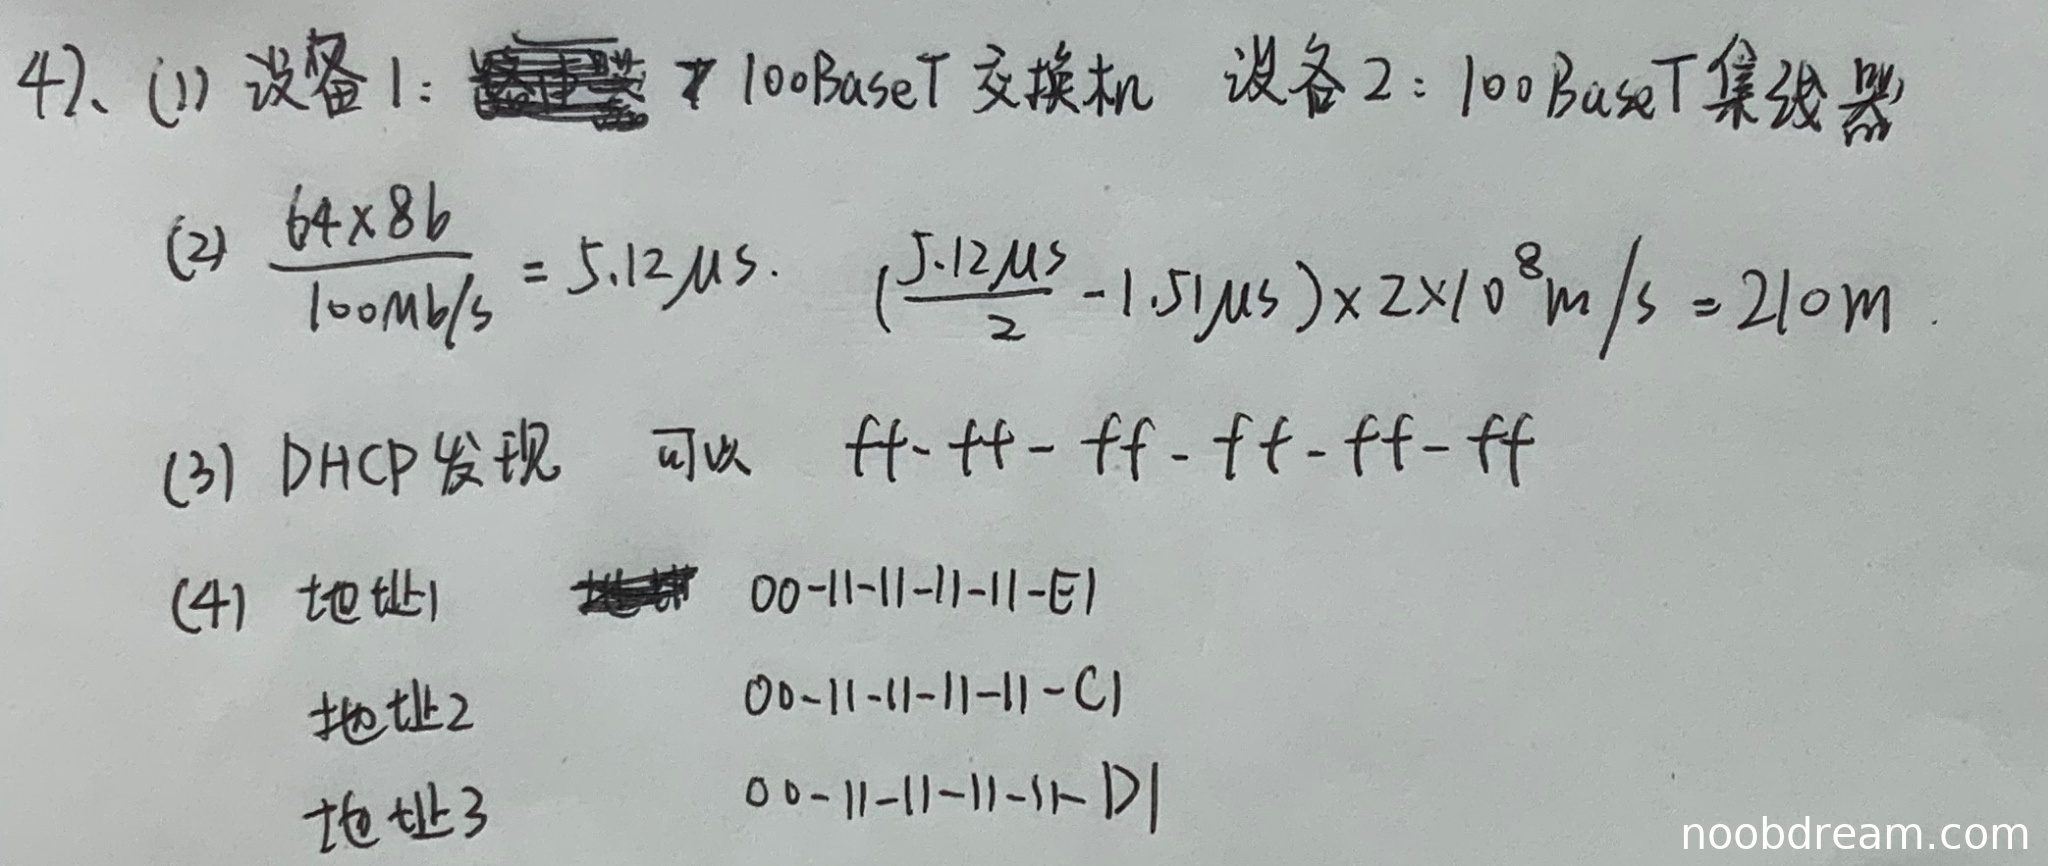 47、(1) 设备1: 100BaseT 交换机 设备2: 100BaseT 集线器
(2) 64×8b / 100Mb/s = 5.12μs. (5.12μs / 2 - 1.51μs) × 2×10⁸m/s = 210m.
(3) DHCP发现 可以 ff-ff-ff-ff-ff-ff
(4) 地址1 00-11-11-11-11-E1
地址2 00-11-11-11-11-C1
地址3 00-11-11-11-11-D1
noobdream.com